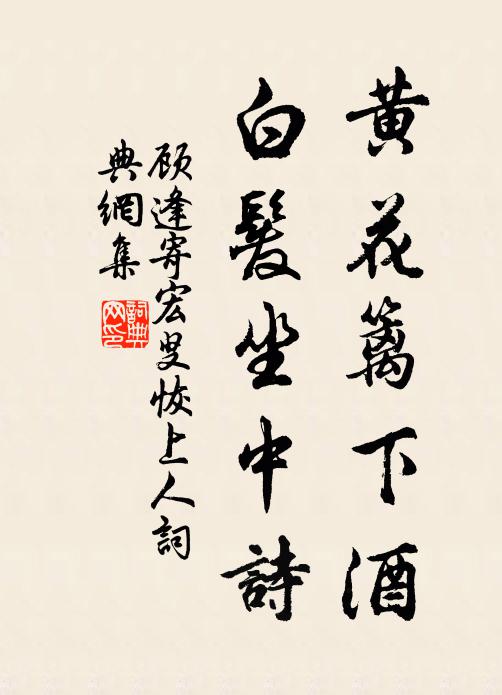 黄花籬下酒
白髮坐中詩
顾逢寄宏叟恢上人詞
典網集
詞典
网印